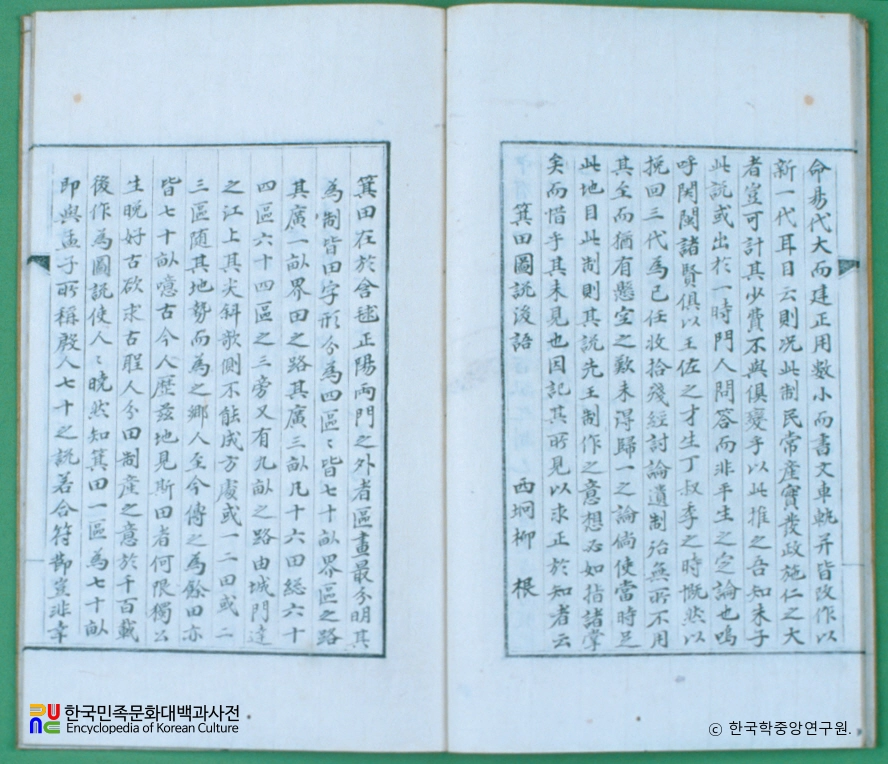 命易代大而建正用數小而書文車軌并皆改作以
新一代耳目云則况此制民常產實發政施仁之大
者豈可計其少費不與俱變乎以此推之吾知朱子
此說或出於一時門人問答而非平生之定論也嗚
呼関閩諸賢俱以王佐之才生丁叔季之時慨然以
挽回三代為己任收拾殘經討論遺制殆無所不用
其至而猶有懸空之歎未得歸一之論倘使當時足
此地目此制則其說先王制作之意想必如指諸掌
矣而惜乎其未見也因記其所見以求正於知者云
箕田圖説後語 西坰柳 根
箕田在於含毬正陽兩門之外者區畫最分明其
為制皆田字形分為四區〻皆七十畝界區之路
其廣一畝界田之路其廣三畝凡十六田総六十
四區六十四區之三旁又有九畝之路由城門達
之江上其尖斜欹側不能成方處或一二田或二
三區随其地勢而為之鄉人至今傳之為餘田亦
皆七十畝噫古今人歷玆地見斯田者何限獨公
生晚好古欲求古聖人分田制產之意於千百載
後作為圖説使人〻曉然知箕田一區為七十畝
即與孟子所稱殷人七十之説若合符節豈非幸
한국민족문화대백과사전
Encyclopedia of Korean Culture
© 한국학중앙연구원.